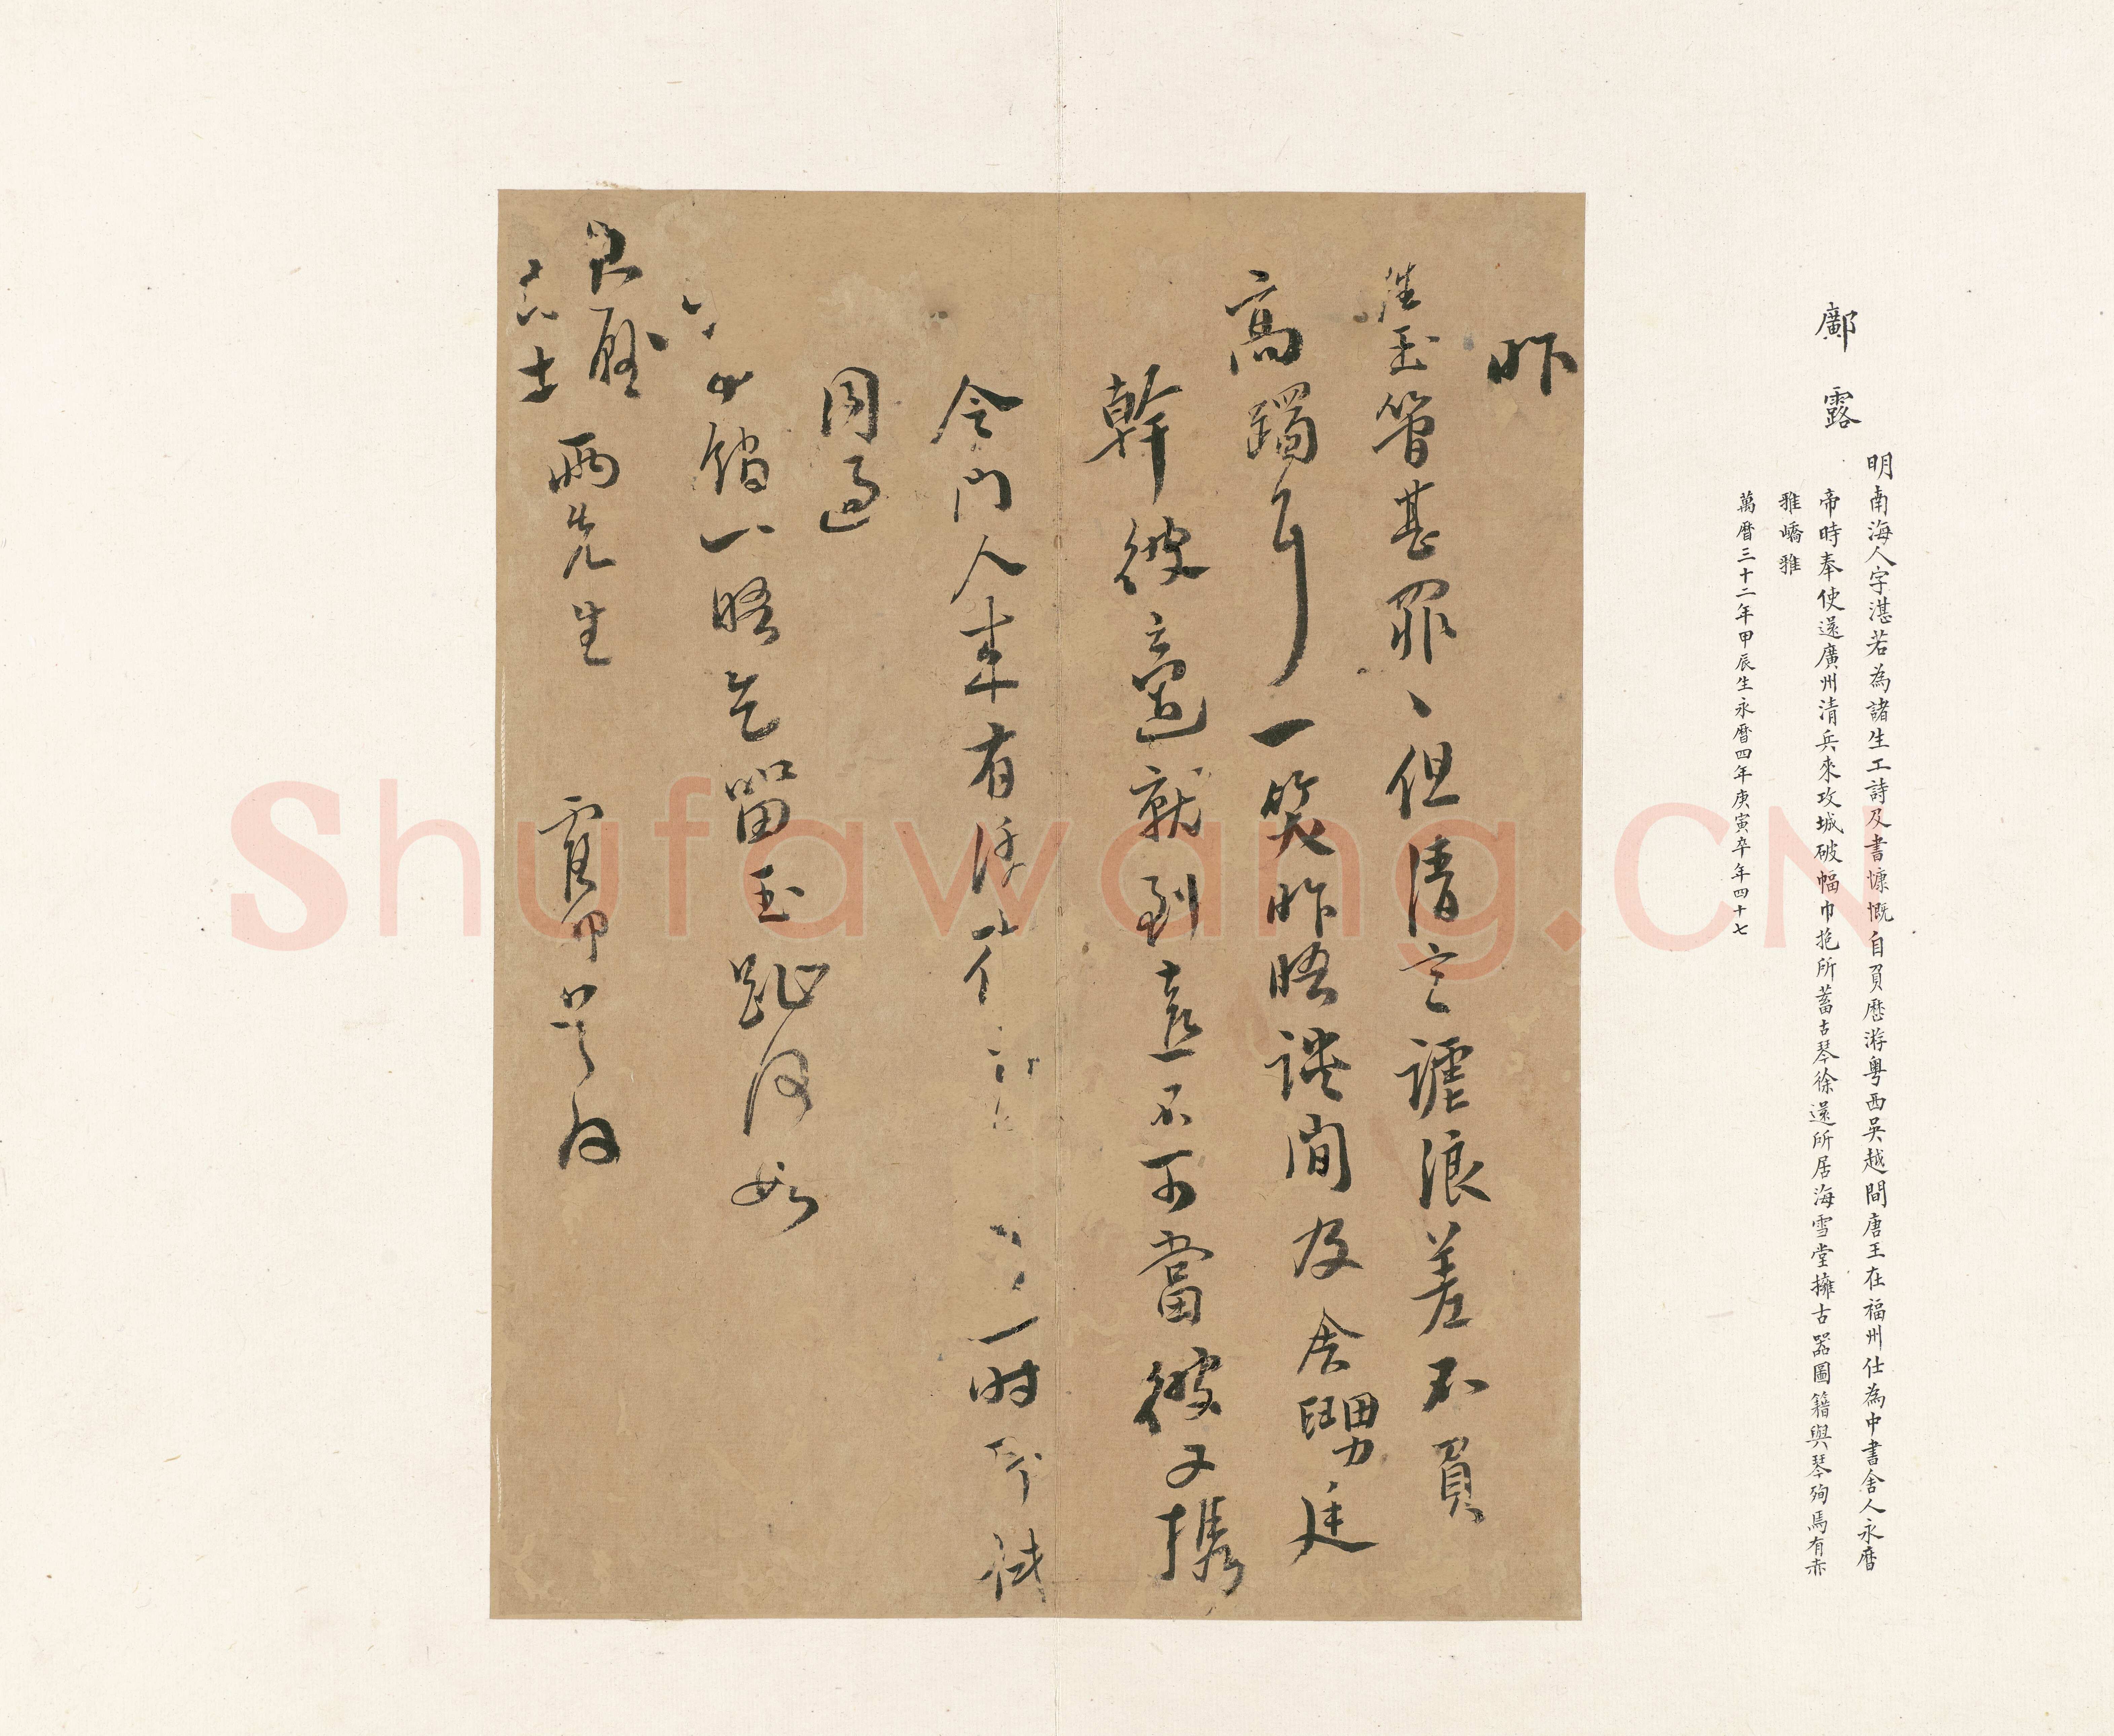 鄺露
明南海人字湛若為諸生工詩及書慷慨自負歷游粵西吳越間唐王在福州仕為中書舍人永曆
帝時奉使還廣州清兵來攻城破幅巾抱所蓄古琴徐還所居海雪堂擁古器圖籍與琴殉焉有赤
雅嶠雅
萬曆三十二年甲辰生永曆四年庚寅卒年四十七
昨
玉管甚罪、但清言謔浪差不負
高躅耳一笑昨晤談間及舍甥廷
幹彼適就到意不可當彼又攜
令門人來有 一時
周過
館一晤乞留玉趾何如
兩先生
露
Shufawang.CN